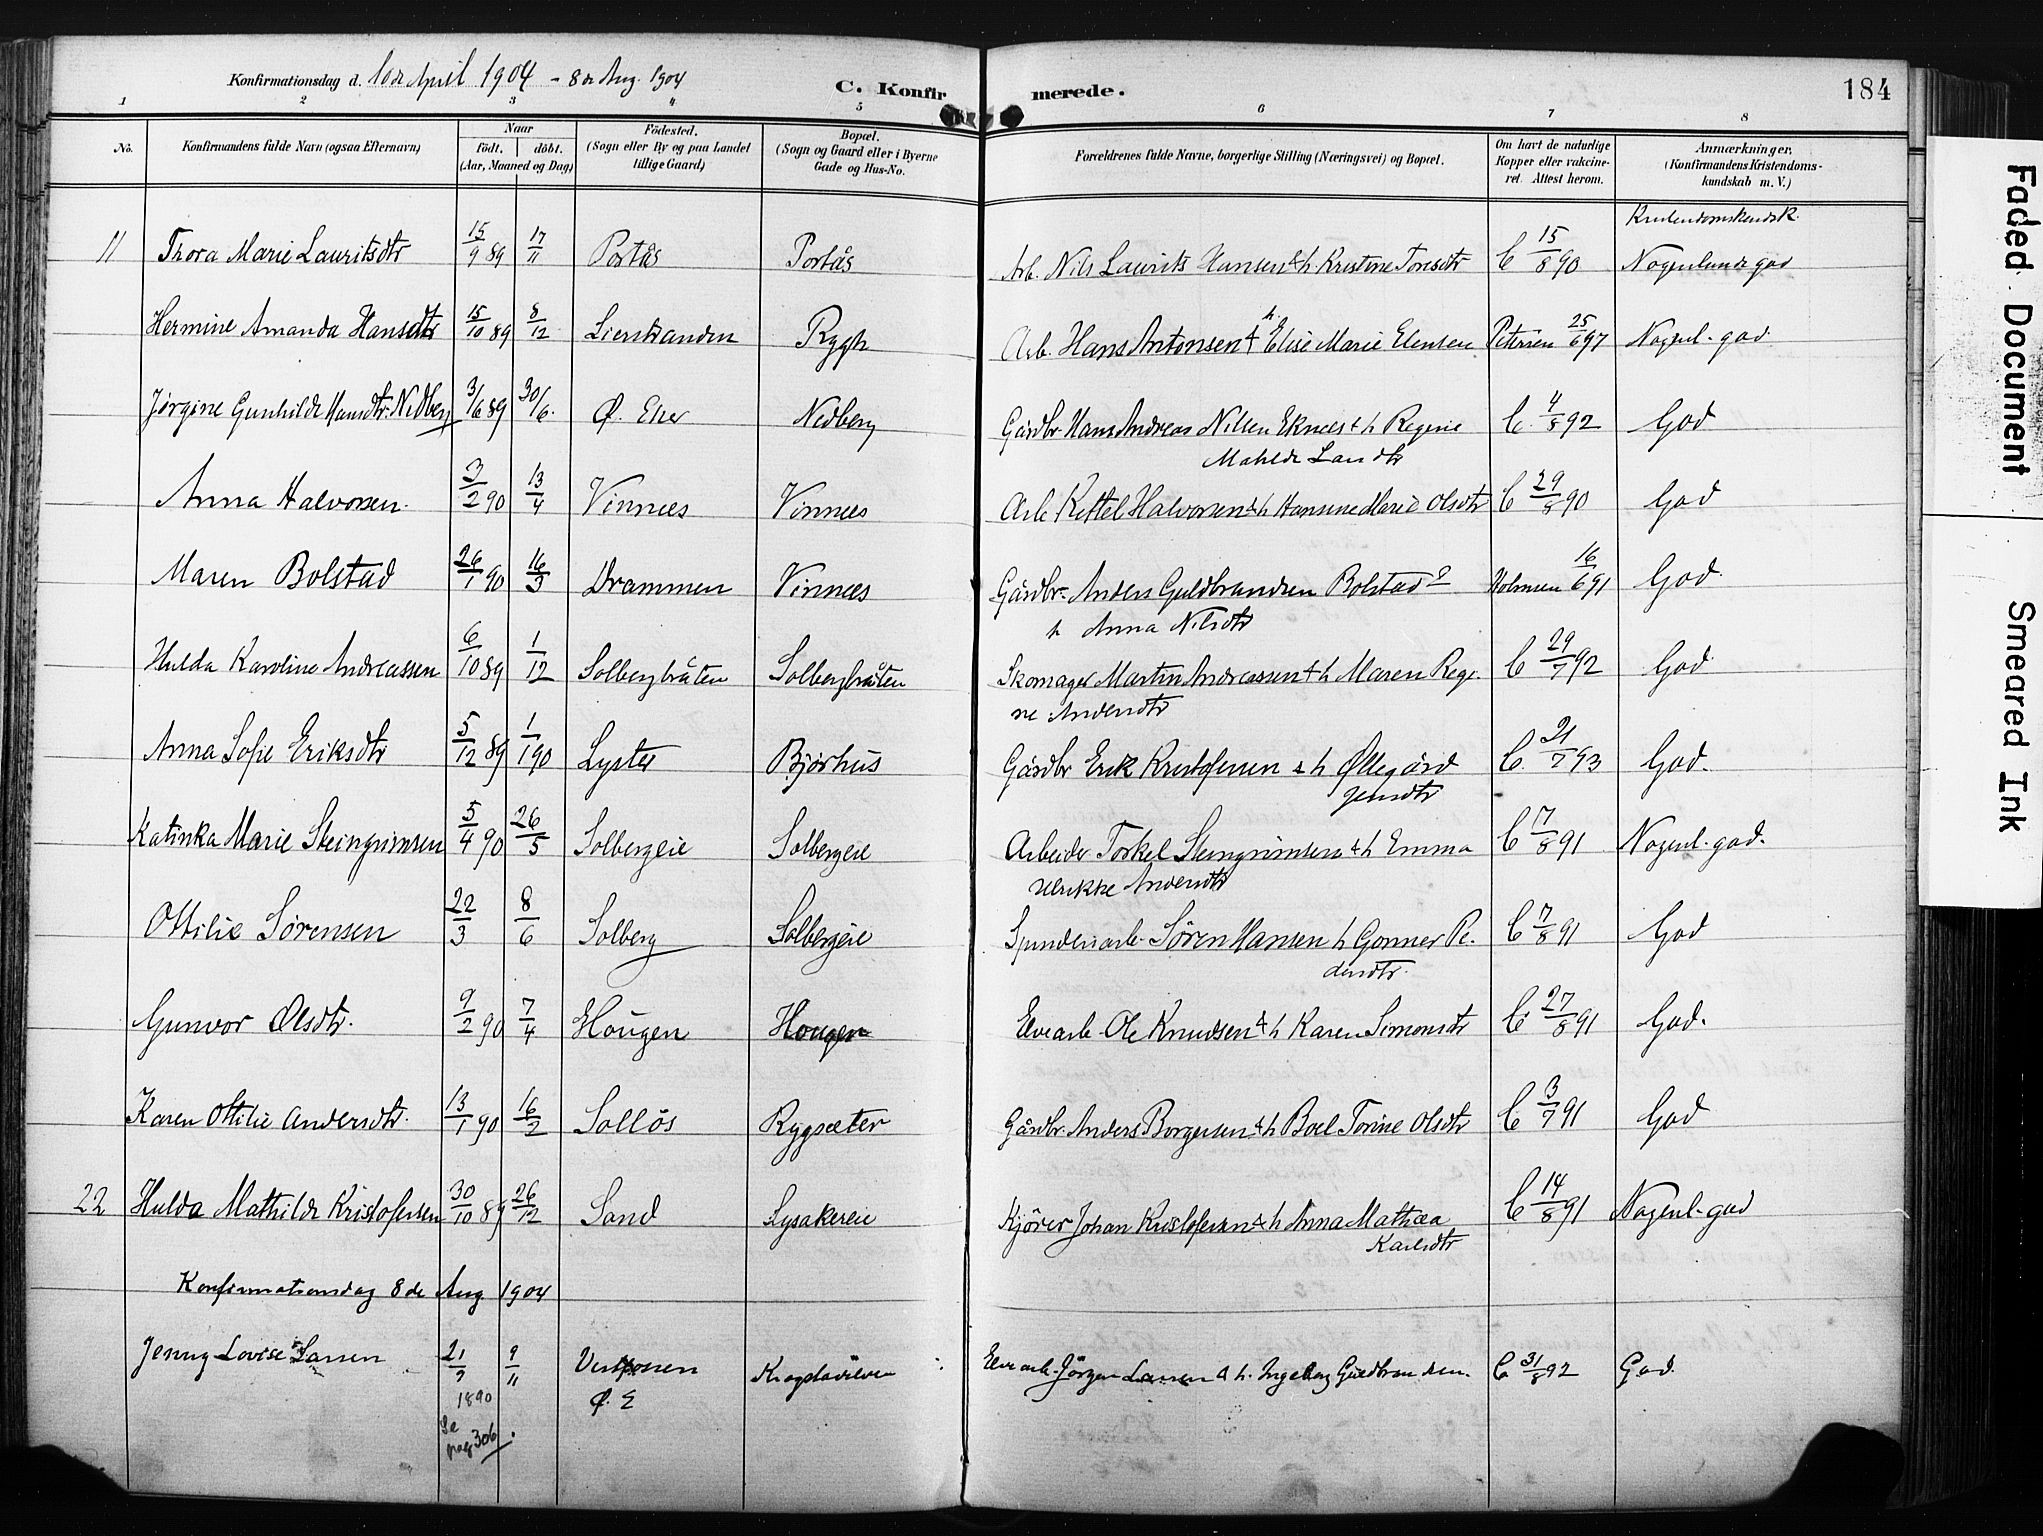 Konfirmationsdag d. 10de April 1904 - 8de Aug. 1904
C. Konfirmerede.
184
1 2 3 4 5 6 7 8
No.
Konfirmandens fulde Navn (ogsaa Efternavn)
Naar
födt. döbt.
(Aar, Maaned og Dag)
Födested.
(Sogn eller By og paa Landet
tillige Gaard)
Bopæl.
(Sogn og Gaard eller i Byerne
Gade og Hus-No.
Forældrenes fulde Navne, borgerlige Stilling (Næringsvei) og Bopæl.
Om havt de naturlige
Kopper eller vakcine-
ret. Attest herom.
Anmærkninger.
(Konfirmandens Kristendoms-
kundskab m. V.)
11 Thora Marie Lauritsdtr 15/9 89 17/11 Portås Portås Arb. Nils Laurits Hansen & h Kristine Toresdtr C 15/8 90 Nogenlunde god
Hermine Amanda Hansdtr 15/10 89 8/12 Lierstranden Rygh Arb. Hans Antonsen & h Elise Marie Elensen Petersen 25/6 97 Nogenl. god
Jørgine Gunhilde Hansdtr. Nedberg 3/6 89 30/6. Ø. Eker Nedberg Gårdbr Hans Andreas Nilsen Eknes & h Regine
Matilde Larsdtr C. 4/8 92 God
Anna Halvorsen. 3/2 90 13/4 Vinnæs Vinnæs Arb Kittel Halvorsen & h Hansine Marie Olsdtr C 29/8 90 God
Maren Bolstad 26/1 90 16/3 Drammen Vinnæs Gårdbr. Anders Guldbrandsen Bolstad &
h Anna Nilsdtr Holmsen 16/6 91 God.
Hulda Karoline Andreassen 6/10 89 1/12 Solbergbråten Solbergbråten Skomager Martin Andreassen & h Maren Regi-
ne Andersdtr C 29/7 92 God.
Anna Sofie Eriksdtr 5/12 89 1/1 90 Lyster Bjørhus Gårdbr Erik Kristofersen & h Øllegård
Jensdtr C. 21/7 93 God.
Katinka Marie Steingrimsen 5/4 90 26/5 Solbergeie Solbergeie Arbeider Torkel Steingrimsen & h Emma
Ulrikke Andersdtr C 7/8 91 Nogenl. god.
Ottilie Sørensen 22/3 8/6 Solberg Solbergeie Spinderiarb. Søren Hansen h Gonner Pe-
dersdtr. C 7/8 91 God
Gunvor Olsdtr. 9/2 90 7/4 Hougen Hougen Elvearb. Ole Knudsen & h Karen Simonsdtr C. 27/8 91 God.
Karen Otilie Andersdtr. 13/1 90 16/2 Solløs Rygsæter Gårdbr. Anders Borgersen & h Boel Torine Olsdtr C 3/7 91 God
22 Hulda Mathilde Kristofersen 30/10 89 26/12 Sand Lysakereie Kjører Johan Kristofersen & h Anna Mathea
Karlsdtr C 14/8 91 Nogenl. god
Konfirmationsdag 8de Aug. 1904
Jenny Lovise Larsen 21/9 1890 9/11 Ø. E Elvearb. Jörgen Larsen & h. Ingeborg Guldbrandsen. C 31/8 92 God.
Se
pag 306.
Faded Document
Smeared Ink